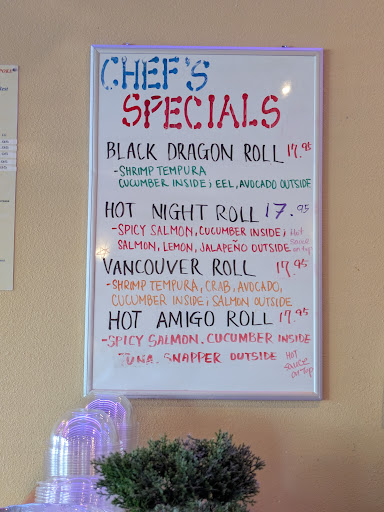 CHEF'S
SPECIALS
BLACK DRAGON ROLL 17.95
-SHRIMP TEMPURA
CUCUMBER INSIDE; EEL, AVOCADO OUTSIDE
HOT NIGHT ROLL 17.95
-SPICY SALMON, CUCUMBER INSIDE;
SALMON, LEMON, JALAPEÑO OUTSIDE
Hot
sauce
on top
VANCOUVER ROLL 17.95
-SHRIMP TEMPURA, CRAB, AVOCADO,
CUCUMBER INSIDE; SALMON OUTSIDE
HOT AMIGO ROLL 17.95
-SPICY SALMON. CUCUMBER INSIDE
TUNA. SNAPPER OUTSIDE
HOT
sauce
on top